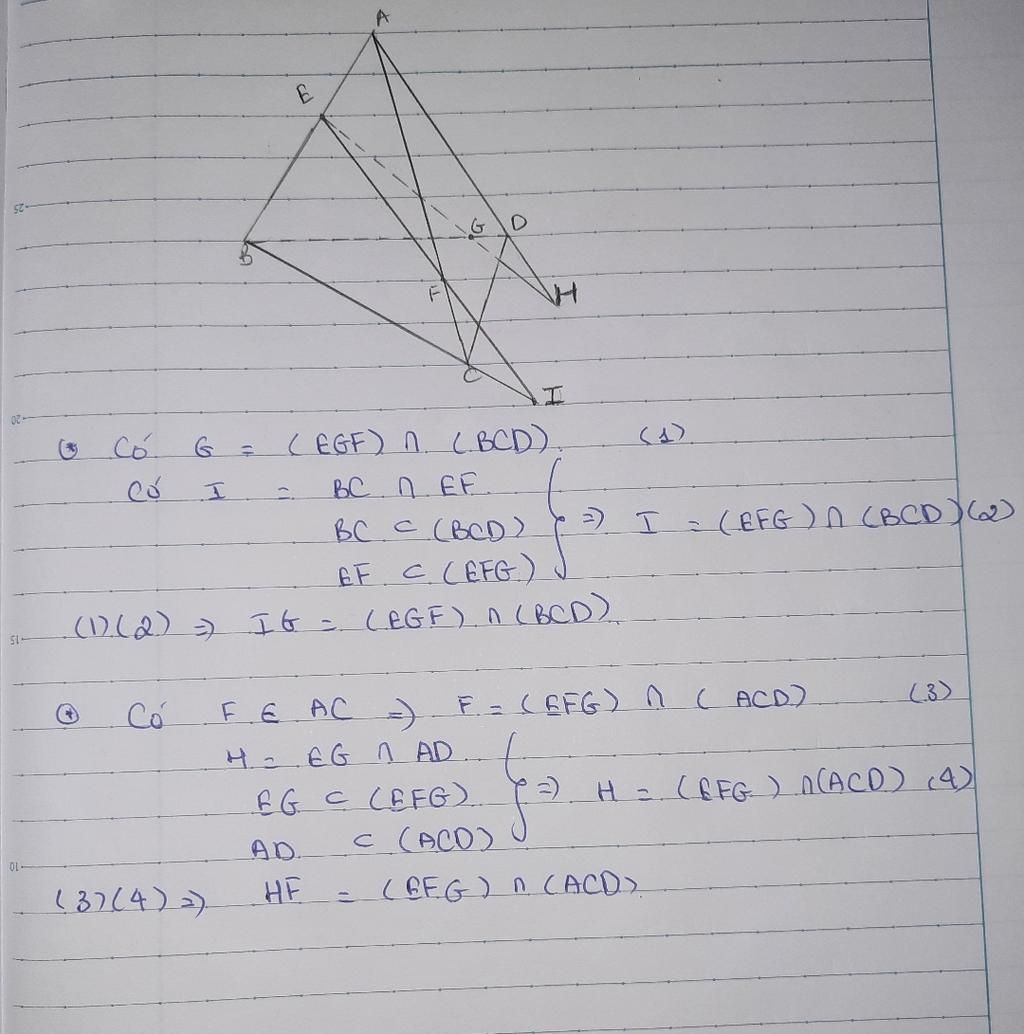 A
E
25
G D
B
F H
C
20
I
⊛ Có G = (EGF) ∩ (BCD) (1)
Có I = BC ∩ EF
BC ⊂ (BCD) } => I = (EFG) ∩ (BCD) (2)
EF ⊂ (EFG)
(1)(2) => IG = (EGF) ∩ (BCD)
15
⊛ Có F ∈ AC => F = (EFG) ∩ (ACD) (3)
H = EG ∩ AD
EG ⊂ (EFG) } => H = (EFG) ∩ (ACD) (4)
AD ⊂ (ACD)
10
(3)(4) => HF = (EFG) ∩ (ACD)